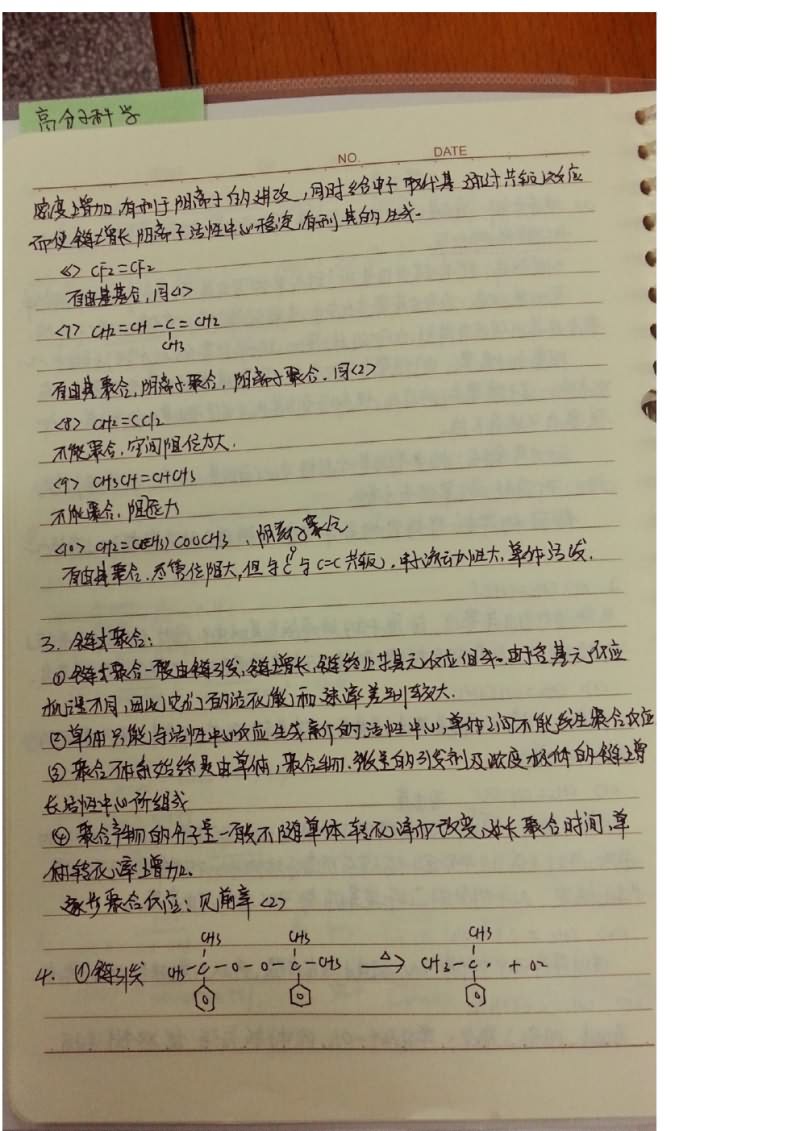 高分子科学
NO.
DATE
密度增加,有利于阴离子的进攻,同时给电子取代基通过共轭效应
而使链增长阴离子活性中心稳定,有利其的生成。
<6> CF2=CF2
自由基聚合,同<1>
<7> CH2=CH-C=CH2
CH3
自由基聚合,阴离子聚合,阳离子聚合。同<2>
<8> CH2=CCl2
不能聚合,空间阻位太大.
<9> CH3CH=CHCH3
不能聚合,阻位大
<10> CH2=C(CH3)COOCH3 、阴离子聚合
自由基聚合.尽管位阻大,但与C与C=C共轭,电子流动性大,单体活泼.
O
3. 链式聚合:
①链式聚合一般由链引发,链增长,链终止等基元反应组成。由于各基元反应
机理不同,因此它们的活化能和速率差别较大.
②单体只能与活性中心反应生成新的活性中心,单体之间不能发生聚合反应
③ 聚合体系始终是由单体,聚合物.微量的引发剂及浓度极低的链增
长活性中心所组成
④ 聚合产物的分子量一般不随单体转化率而改变.延长聚合时间,单
体转化率增加.
逐步聚合反应:见前章<2>
CH3 CH3 CH3
4. ①链引发 CH3-C-O-O-C-CH3 △ CH3-C· + O2